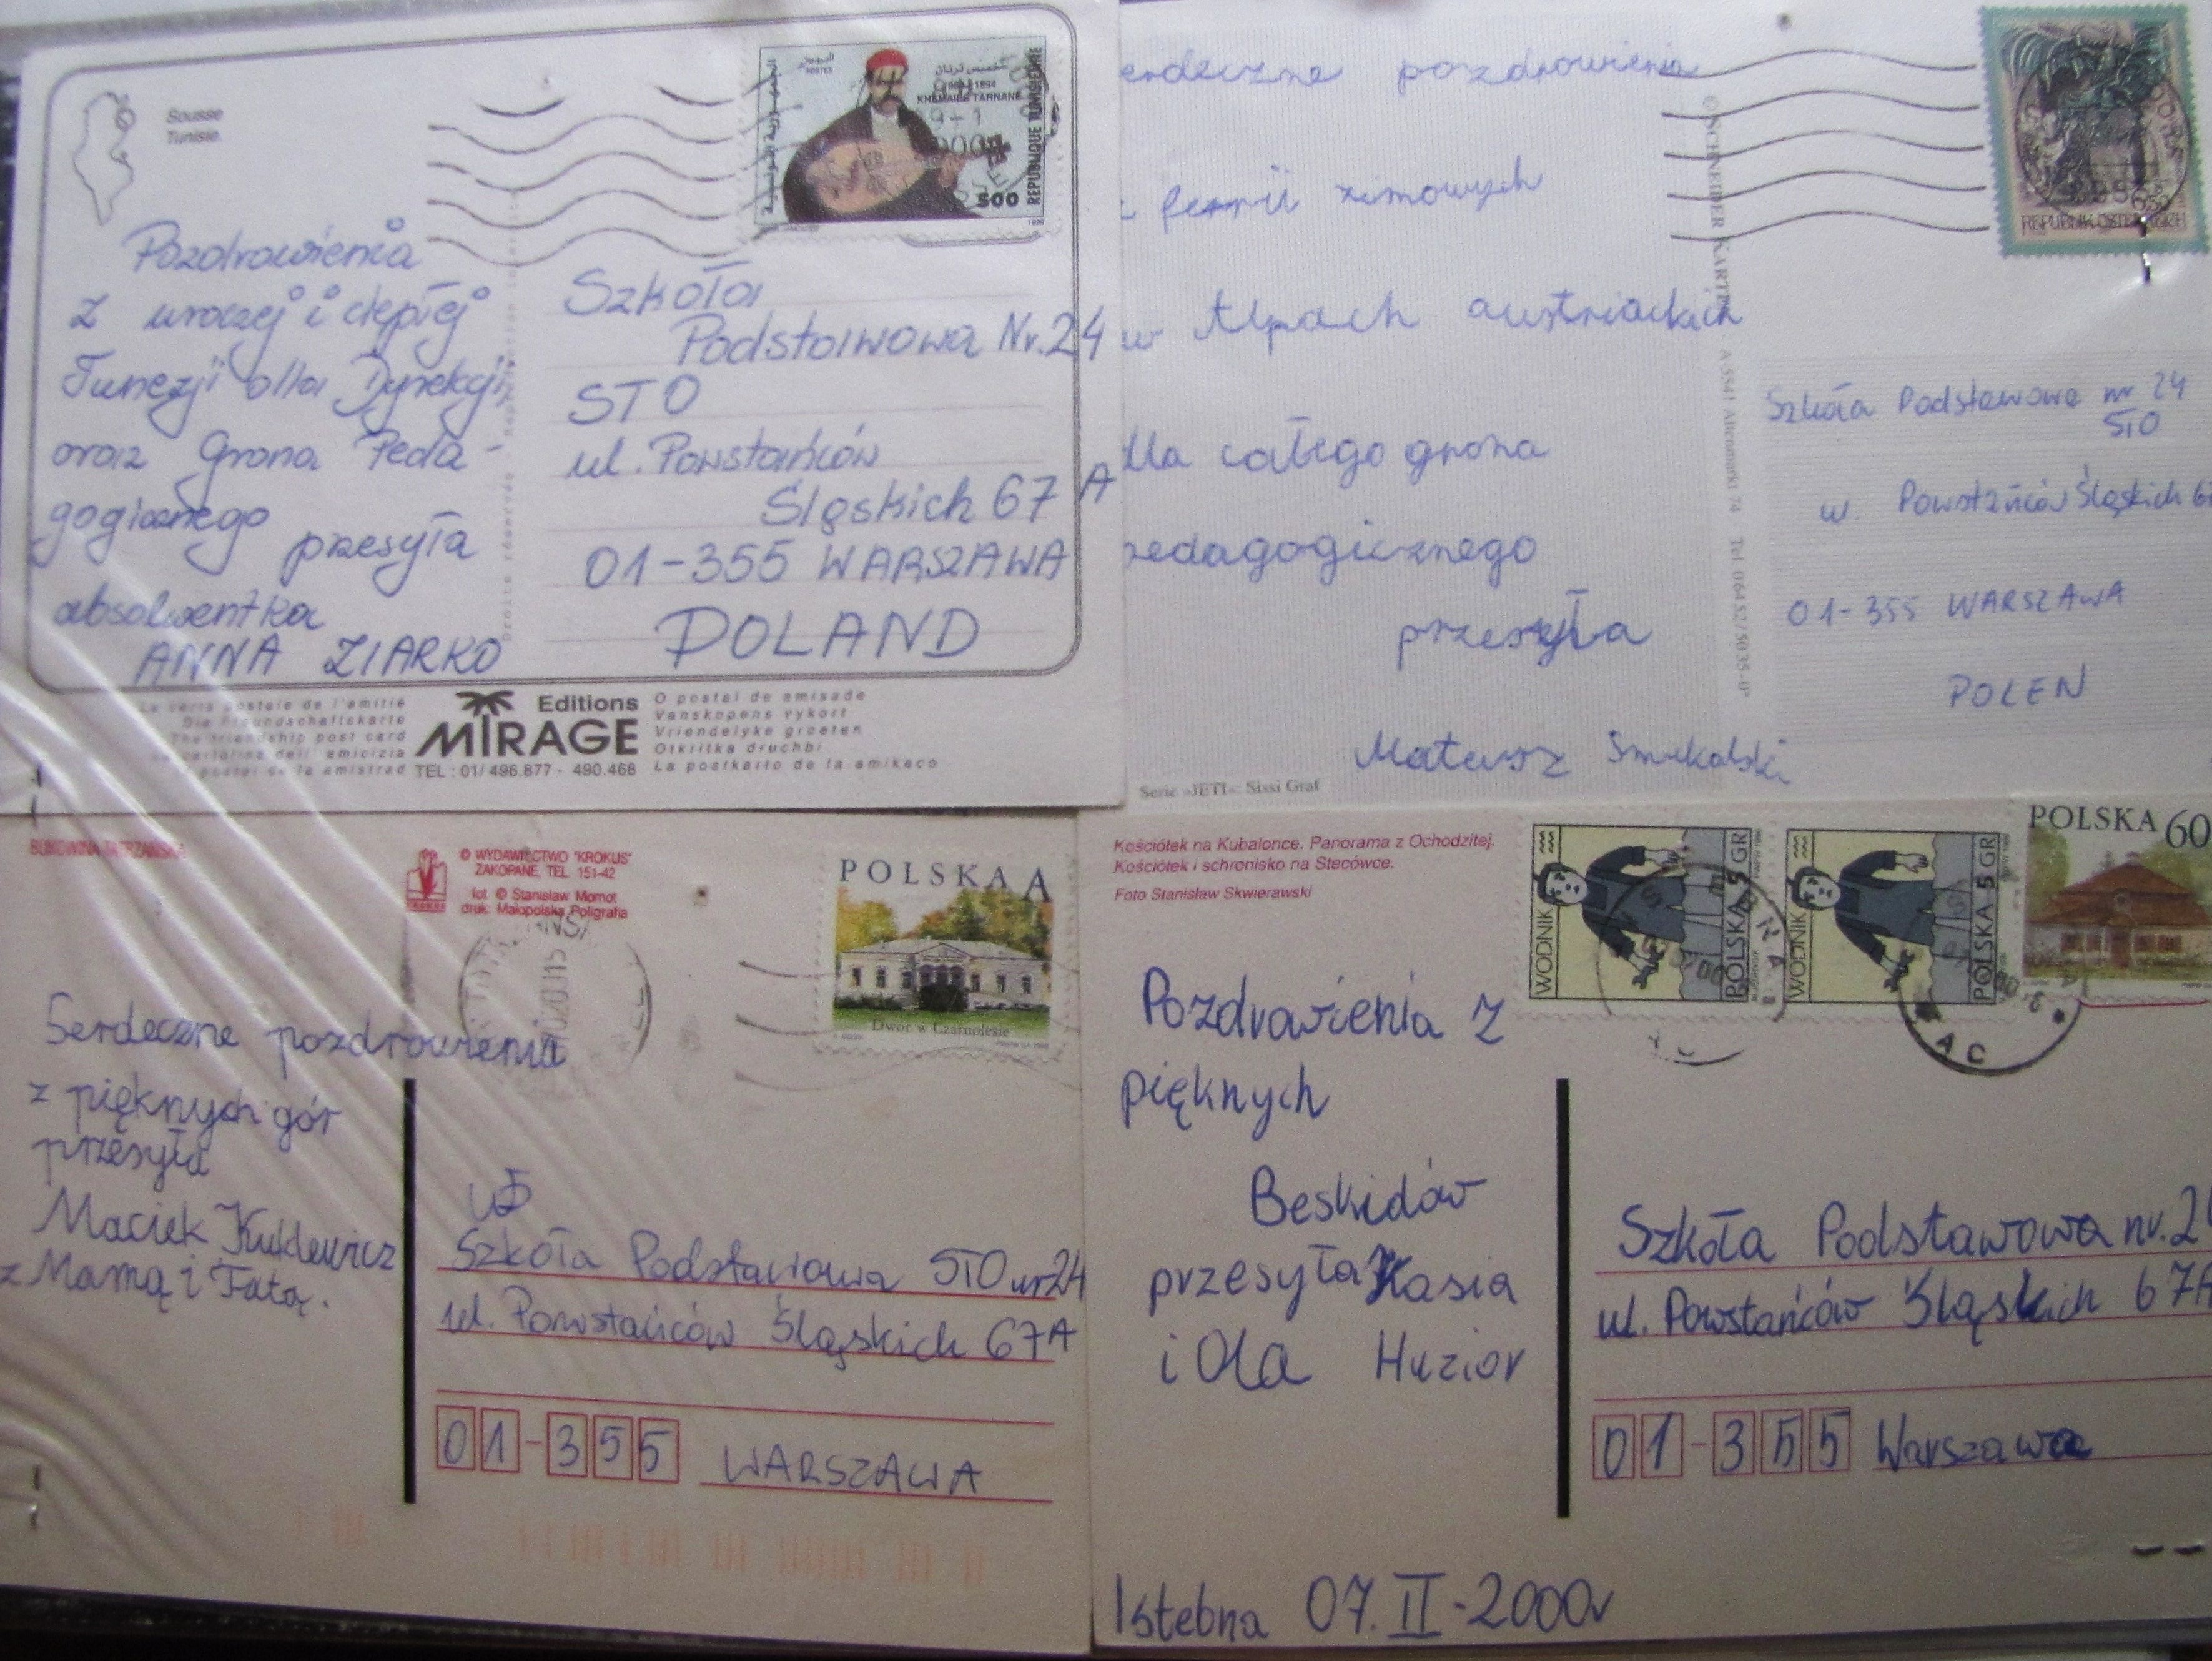 Sousse
Tunisie
POSTES
KHEMAIES TARNANE
REPUBLIQUE TUNISIENNE
500
Pozdrowienia
z uroczej i ciepłej
Tunezji dla Dyrekcji
oraz Grona Peda-
gogicznego
przesyła
absolwentka
ANNA ZIARKO
Szkoła
Podstawowa Nr. 24
STO
ul. Powstańców
Śląskich 67 A
01-355 WARSZAWA
POLAND
La carte postale de l'amitié
Die Freundschaftskarte
The friendship post card
amicizia
postal de la amistrad
Editions
MIRAGE
TEL : 01/ 496.877 - 490.468
O postal de amisade
Vanskopens vykort
Vriendelyke groeten
Otkritka druchbi
La postkarto de la amikeco
erdeczne pozdrowienia
z ferii zimowych
w Alpach austriackich
dla całego grona
pedagogicznego
przesyła
Mateusz Smukalski
Serie »JETI«: Sissi Graf
© SCHNEIDER KARTEN · A 5541 Altenmarkt 74 Tel 06452/5035-0*
REPUBLIK ÖSTERREICH
Szkoła Podstawowa nr 24
STO
ul. Powstańców Śląskich 67
01-355 WARSZAWA
POLEN
BUKOWINA TATRZAŃSKA
© WYDAWNICTWO "KROKUS"
ZAKOPANE, TEL. 151-42
fot. © Stanisław Momot
druk: Małopolska Poligrafia
KROKUS
POLSKA A
Dwór w Czarnolesie
Serdeczne pozdrowienia
z pięknych gór
przesyła
Maciek Kuklewicz
z Mamą i Tatą.
Szkoła Podstawowa STO nr 24
ul. Powstańców Śląskich 67A
01-355 WARSZAWA
Kościółek na Kubalonce. Panorama z Ochodzitej.
Kościółek i schronisko na Stecówce.
Foto Stanisław Skwierawski
WODNIK
POLSKA 5 GR
WODNIK
POLSKA 5 GR
POLSKA 60
Pozdrowienia z
pięknych
Beskidów
przesyła Kasia
i Ola Huzior
Szkoła Podstawowa nr. 2
ul. Powstańców Śląskich 67A
01-355 Warszawa
Istebna 07. II - 2000r